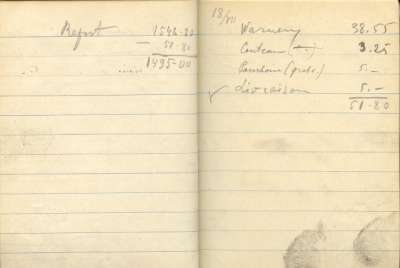 Report 1546-80
— 51-80
1495-00
18/00
Warnery 38.55
Couteau (—) 3.25
Pourboire (prob.) 5.—
✓ Livraison 5.—
51-80